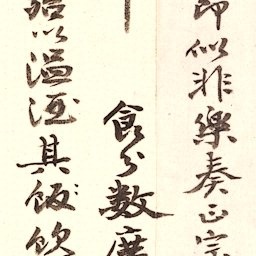 即似非樂奏正宗
食分数度
以温酒其飯飲